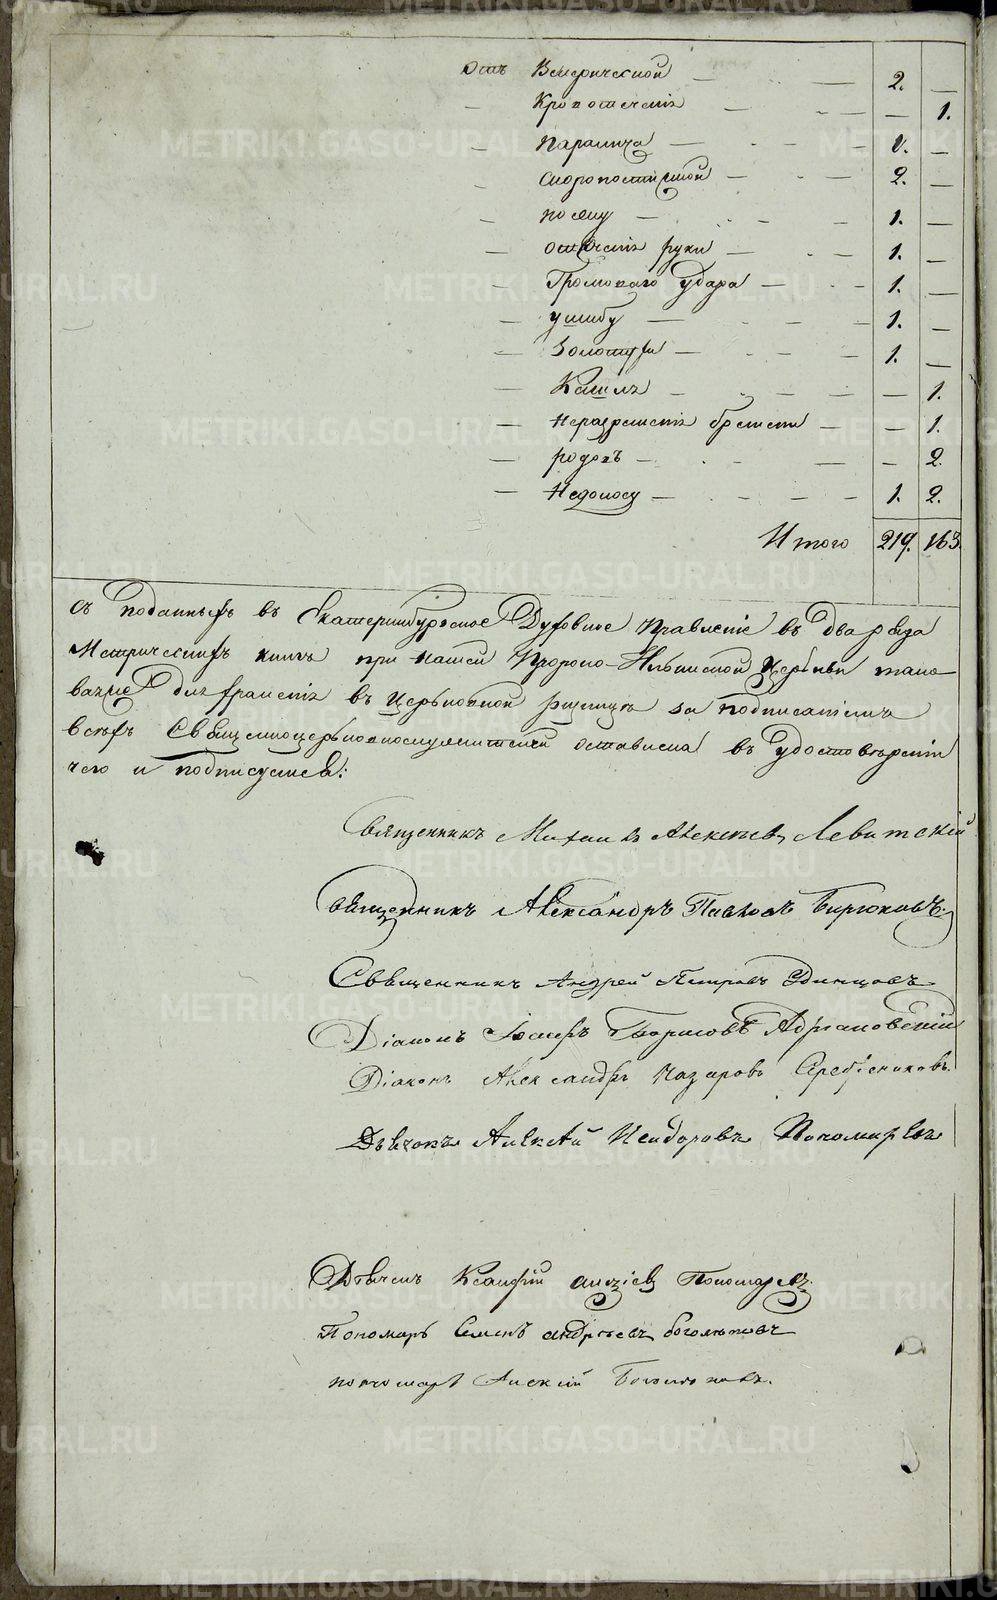 Отъ Венерической — 2. —
Кровотечелiя — — 1.
Паралича — 1. —
Скоропостижной — 2. —
1. —
руки — 1. —
Громоваго Удара — 1. —
ушибу — 1. —
Золотухи — 1. —
Кашля — — 1.
Неразрешенiя бремени — — 1.
родовъ — — 2.
Недоносу — 1. 2.
Итого 219. 163.
съ поданныхъ въ Екатеринбургское Духовное Правленiе въ два раза
Метрическихъ книгъ при нашей Пророко-Ильинской Церькви тако
ваяже для храненiя въ Церьковной ризнице за подписанiемъ
всехъ Священноцерьковнослужителей оставлена въ удостоверенiи
чего и подписуемся:
Священникъ Михаилъ Алексеевъ Левитскiй
Священникъ Александръ Павловъ Бирюковъ.
Священникъ Андрей Петровъ Одинцовъ
Дiаконъ Iосифъ Борисовъ Адриановскiй
Дiаконъ Александръ Назаровъ Серебрениковъ.
Дьячокъ Алексей Исидоровъ Пономаревъ
Дьячекъ Пономаревъ.
Пономарь Семенъ Андреевъ Боголеповъ
пономарь Алексiй
METRIKI.GASO-URAL.RU